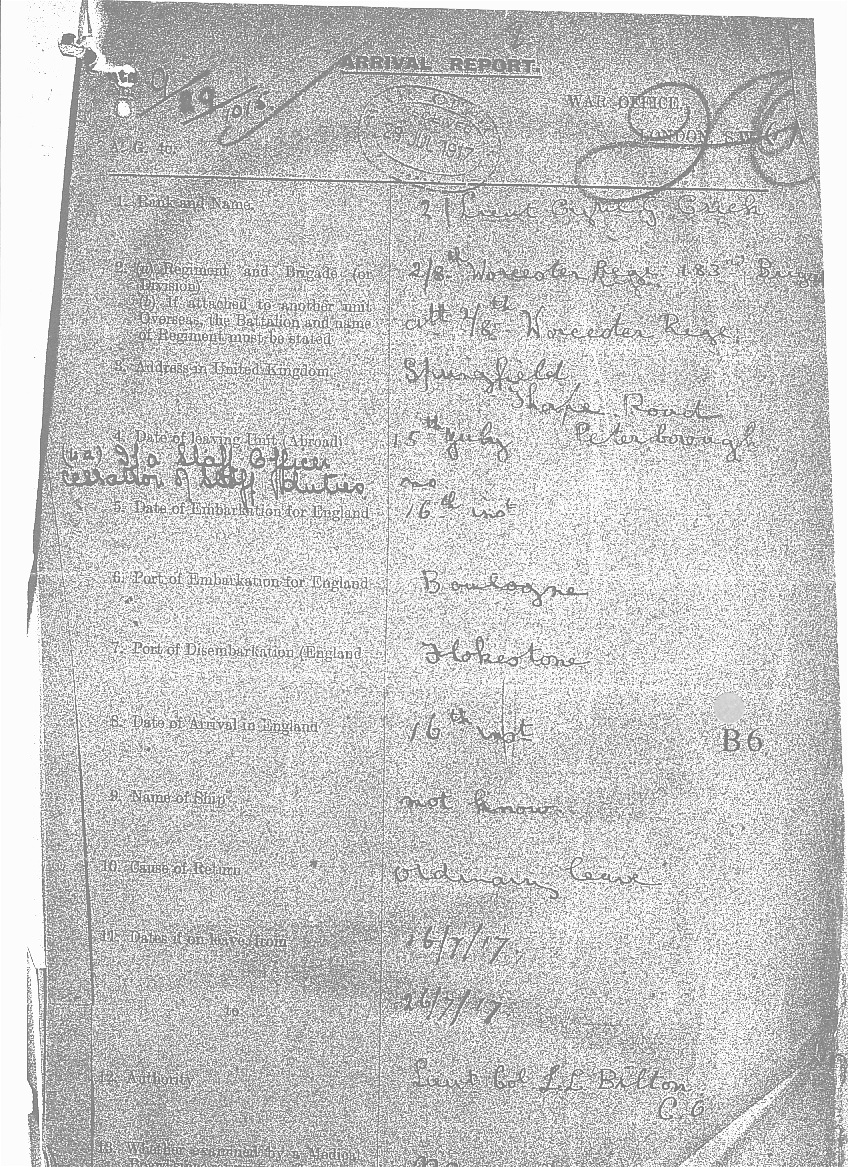 ARRIVAL REPORT.
9
WAR OFFICE,
LONDON, S.W.
29 JUL 1917
A. G. 4c.
1. Rank and Name 2/Lieut Erick
2. (a) Regiment and Brigade (or Division) 2/8th Worcester Regt. 183rd
(b) If attached to another unit
Overseas, the Battalion and name att 2/8th Worcester Regt.
of Regiment must be stated
3. Address in United Kingdom Springfield
Thorpe Road
Peterborough
4. Date of leaving Unit (Abroad) 15th July
(4a) If a Staff Officer
cessation of Staff duties no
5. Date of Embarkation for England 16th inst
6. Port of Embarkation for England Boulogne
7. Port of Disembarkation (England Flokestone
8. Date of Arrival in England 16th inst
B6
9. Name of Ship not known
10. Cause of Return Ordinary leave
11. Dates if on leave, from 16/7/17.
to 26/7/17.
12. Authority Lieut Col L.L. Bilton
C.O
13. Whether examined by a Medical